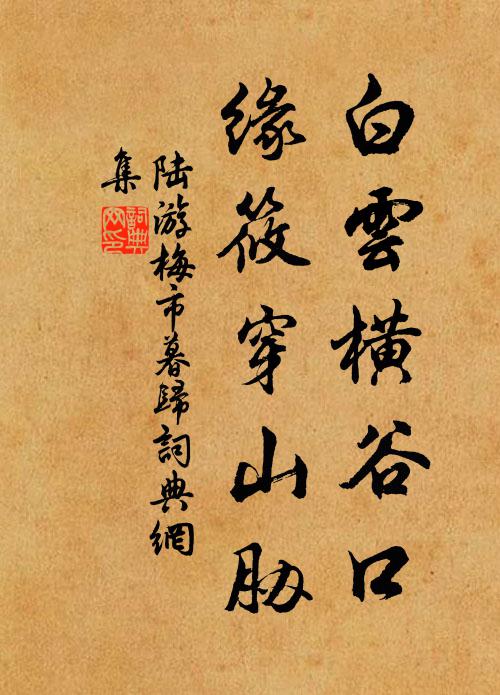 白雲橫谷口
緣筱穿山胁
陸游梅市暮歸詞典網
集
詞典
网印